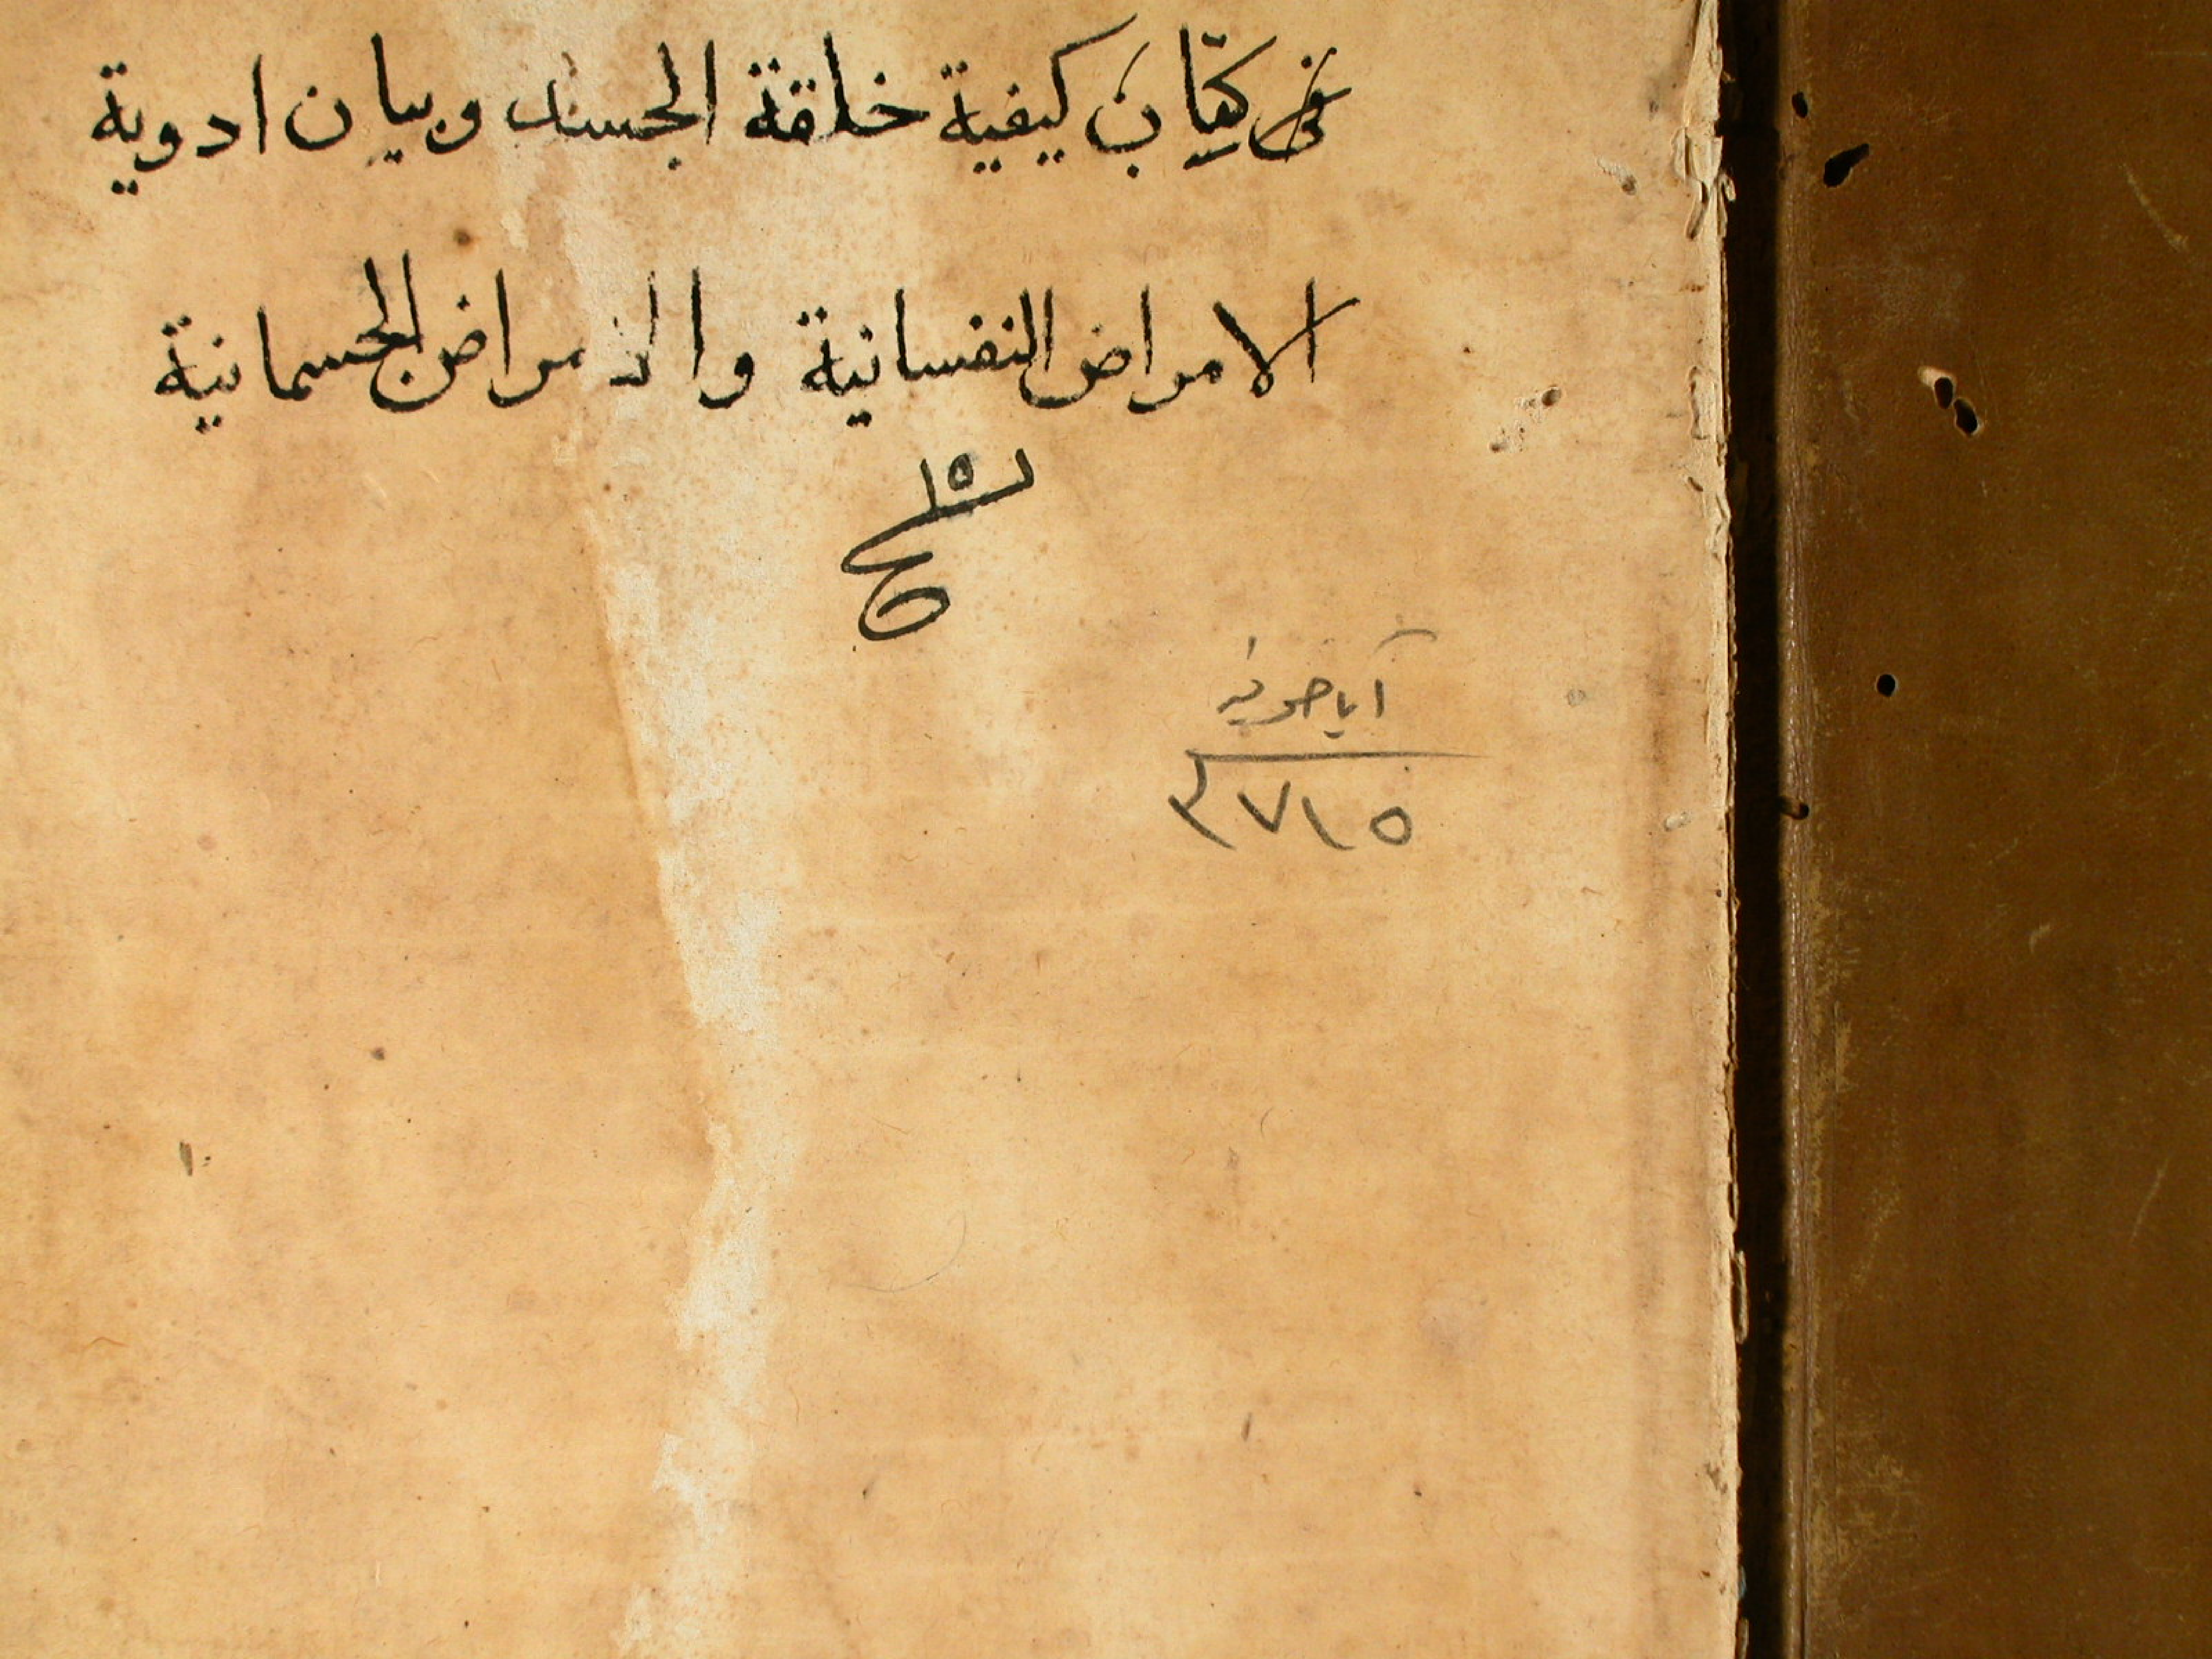 كتاب كيفية خلقة الجسد وبيان ادوية
الامراض النفسانية والامراض الجسمانية
١٥
آياصوفيه
٣٧١٥